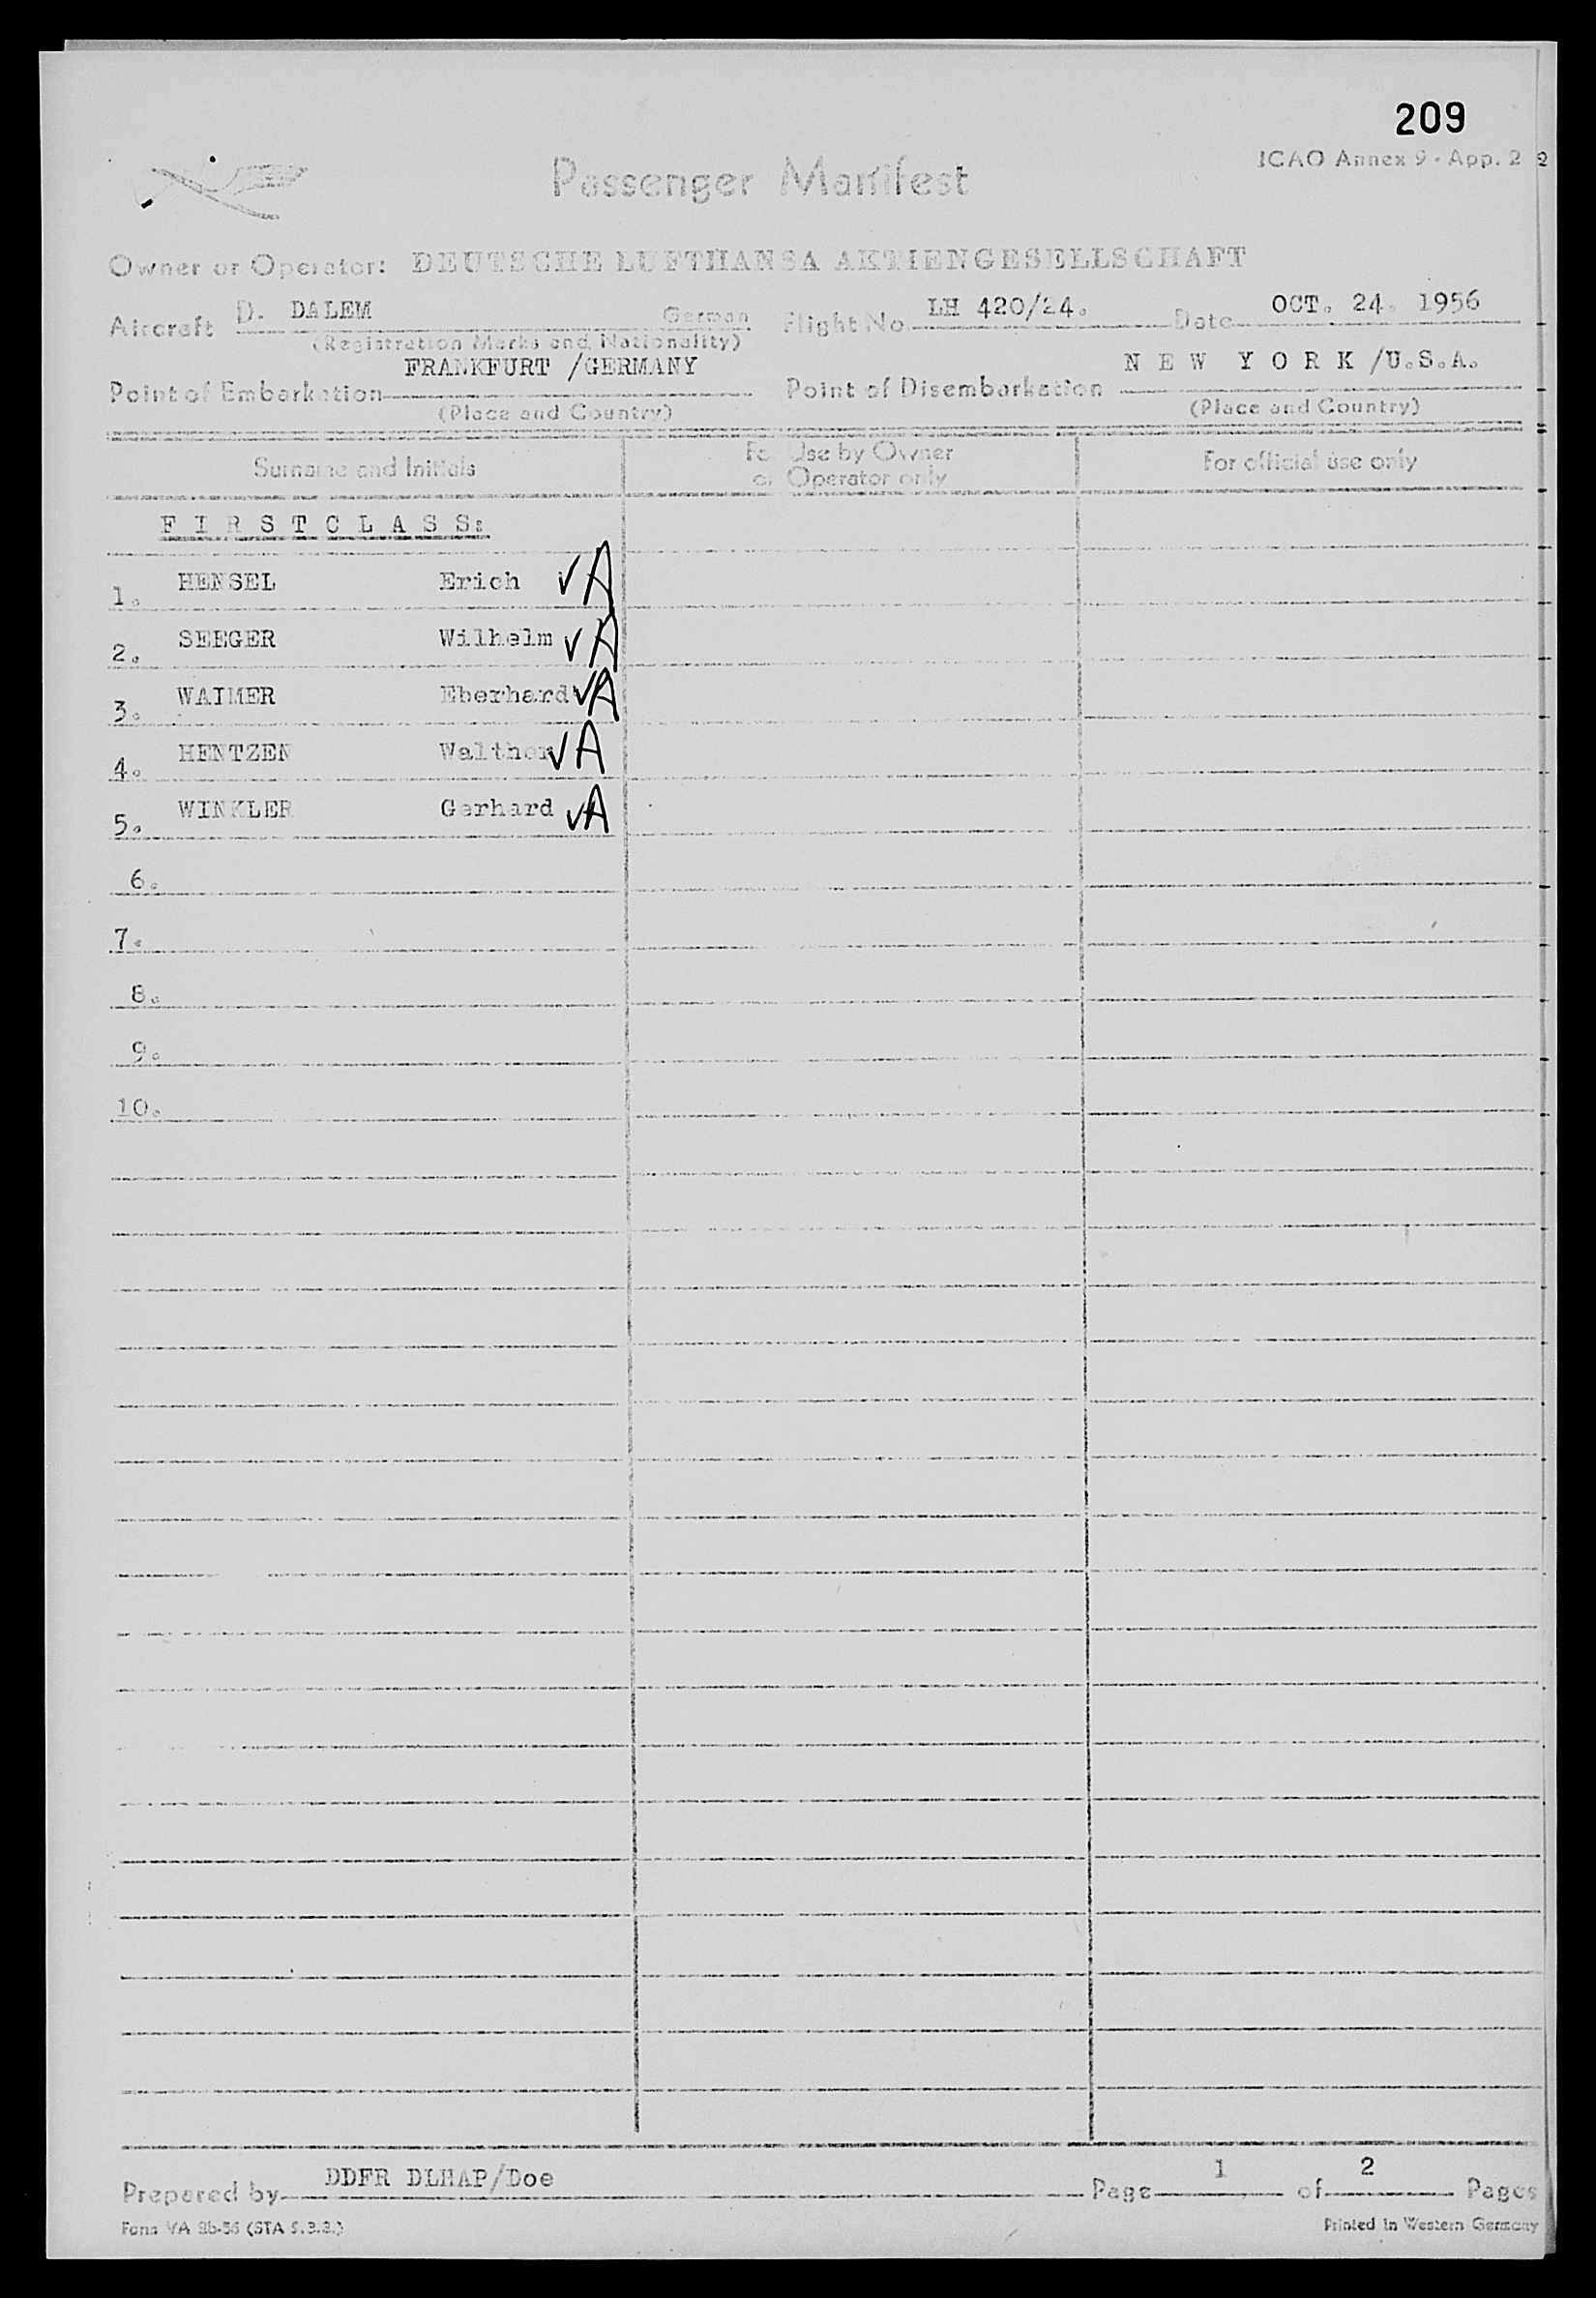 209
ICAO Annex 9 - App. 2
Passenger Manifest
Owner or Operator: DEUTSCHE LUFTHANSA AKTIENGESELLSCHAFT
Aircraft D. DALEM German Flight No. LH 420/24. Date OCT. 24. 1956
(Registration Marks and Nationality)
Point of Embarkation FRANKFURT /GERMANY Point of Disembarkation N E W Y O R K /U.S.A.
(Place and Country) (Place and Country)
Surname and Initials For Use by Owner or Operator only For official use only
F I R S T C L A S S:
1. HENSEL Erich √A
2. SEEGER Wilhelm √A
3. WAIMER Eberhard √A
4. HENTZEN Walther √A
5. WINKLER Gerhard √A
6.
7.
8.
9.
10.
Prepared by DDFR DLHAP/Doe Page 1 of 2 Pages
Form VA 2b-56 (STA 5.3.3.) Printed in Western Germany